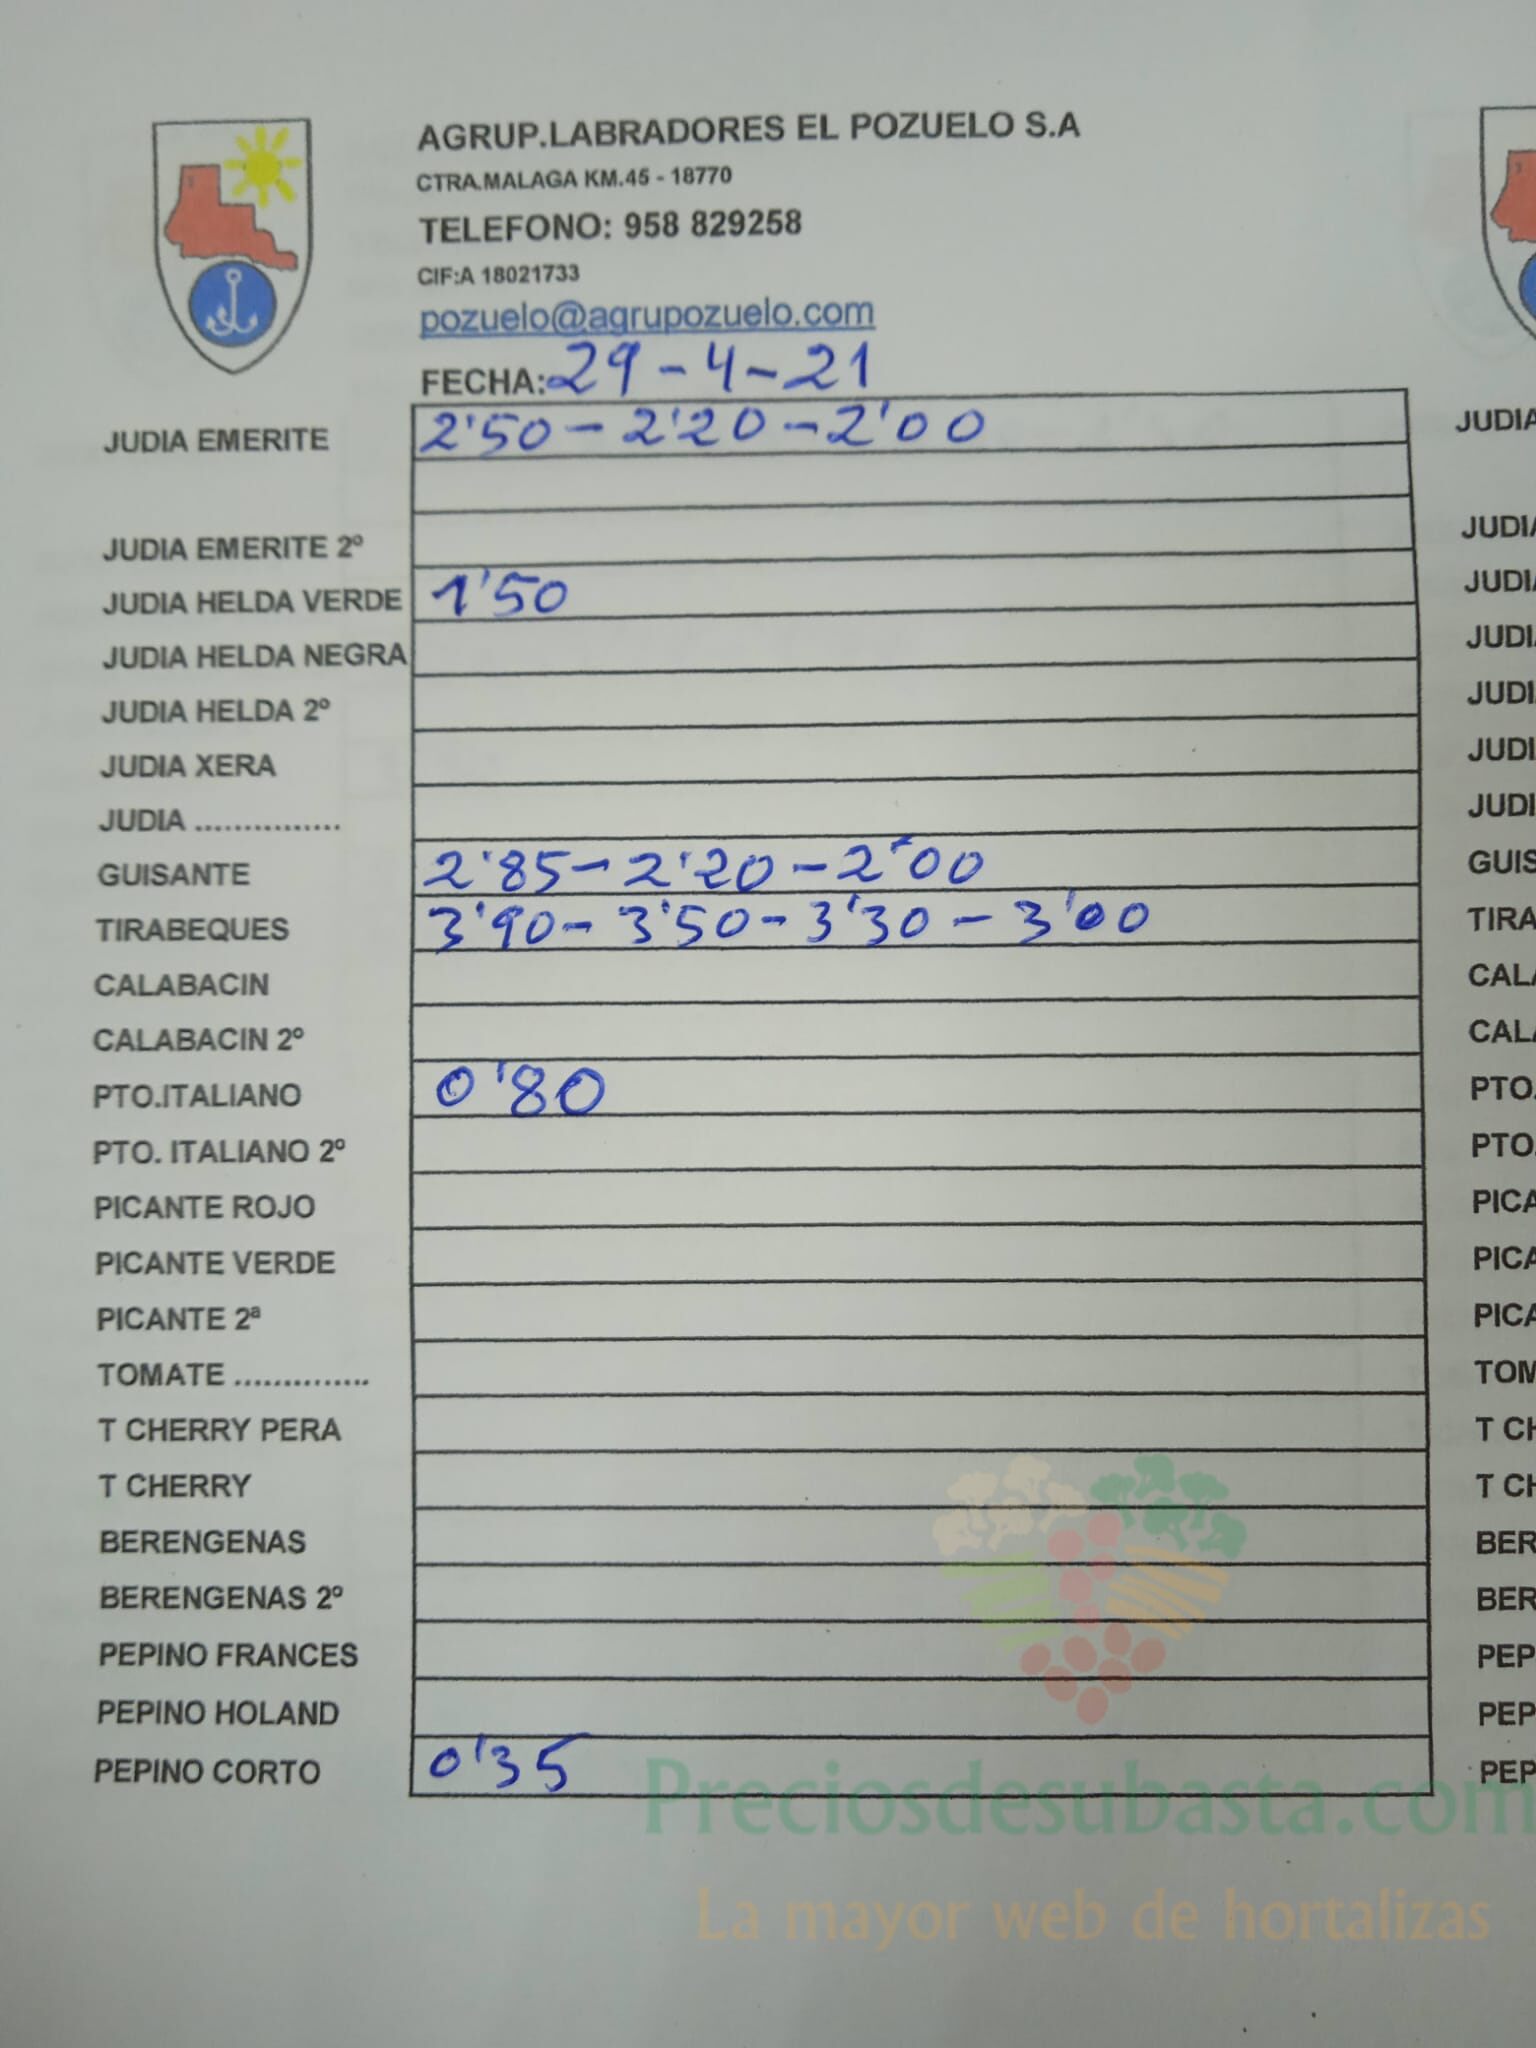 AGRUP.LABRADORES EL POZUELO S.A
CTRA.MALAGA KM.45 - 18770
TELEFONO: 958 829258
CIF:A 18021733
pozuelo@agrupozuelo.com
FECHA: 29-4-21
JUDIA EMERITE 2'50 - 2'20 - 2'00
JUDIA EMERITE 2º
JUDIA HELDA VERDE 1'50
JUDIA HELDA NEGRA
JUDIA HELDA 2º
JUDIA XERA
JUDIA ...............
GUISANTE 2'85 - 2'20 - 2'00
TIRABEQUES 3'90 - 3'50 - 3'30 - 3'00
CALABACIN
CALABACIN 2º
PTO.ITALIANO 0'80
PTO. ITALIANO 2º
PICANTE ROJO
PICANTE VERDE
PICANTE 2ª
TOMATE ..............
T CHERRY PERA
T CHERRY
BERENGENAS
BERENGENAS 2º
PEPINO FRANCES
PEPINO HOLAND
PEPINO CORTO 0'35
Preciosdesubasta.com
La mayor web de hortalizas
JUDIA
JUDIA
JUDIA
JUDIA
JUDI
JUDI
JUDI
GUIS
TIRA
CALA
CALA
PTO.
PTO.
PICA
PICA
PICA
TOM
T CH
T CH
BER
BER
PEP
PEP
PEP